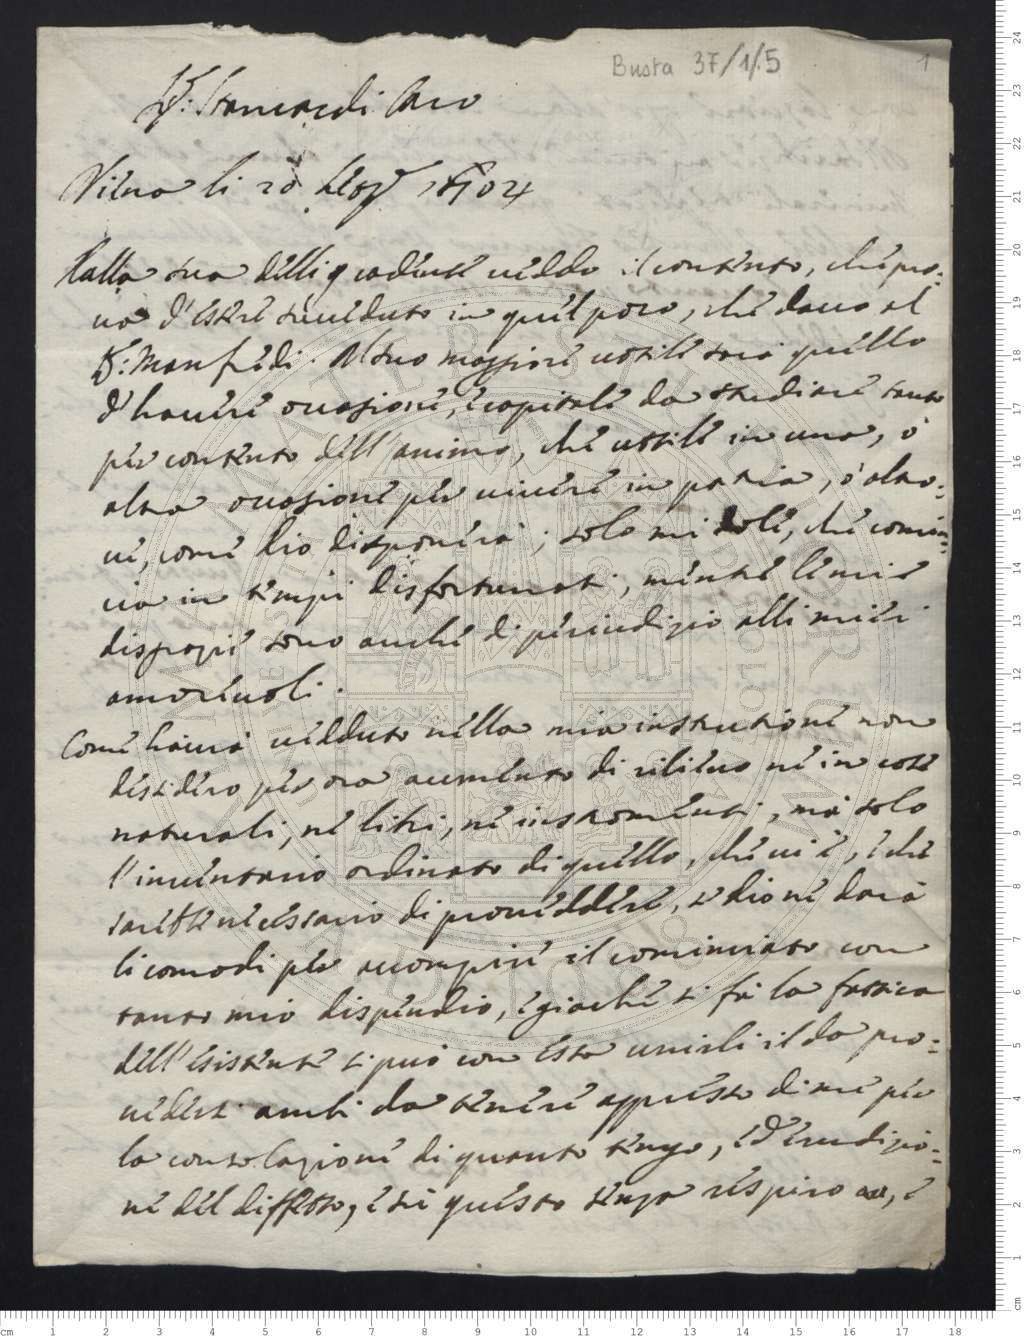 Busta 37/1/.5
1
Sr: Stancardi Caro
Viena li 20 1704
Dalla sua delli 9 cadente veddo il contento, che pro-
va d'essere succeduto in quel poco, che davo al
Sr: Manfredi. Al suo maggiore uttile sarà quello
d'havere occasione, e capitale da studiare tanto
per contento dell'animo, che uttile in una, ò
altra occasione per vivere in patria, ò altro-
ve, come Dio disponerà; solo mi dole, che comin-
cia in tempi disfortunati, mentre le mie
disgrazie sono anche di preiudizio alli miei
amorevoli.
Come haverà vedduto nella mia instrutione non
desidero per ora aumento di rilievo ne in cose
naturali, ne libri, ne instromenti, mà solo
l'inventario ordinato di quello, che vi è, e che
sarebbe necessario di proveddere, se Dio ne darà
li comodi per accompire il cominciato con
tanto mio dispendio, e giache si fà la fattica
dell'esistente si può con esta unirli il da pro-
vedersi ambi da tenere appresso di me per
la consolazione di quanto tengo, ed erudizio-
ne del diffetto, e se questo tengo respiro, e